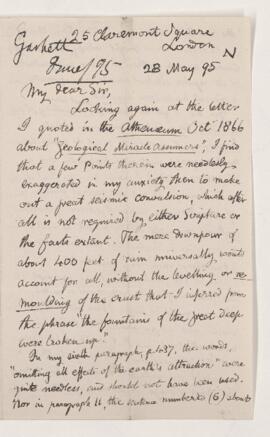 Garbett
25 Claremont Square
London N
June/95
28 May 95
My dear Sir,
Looking again at the letter
I quoted in the Athenæum Oct 1866
about "Geological Miracle Assumers", I find
that a few points therein were needlessly
exaggerated in my anxiety then to make
out a great seismic convulsion, which after
all is not required by either Scripture or
the facts extant. The mere downpour of
about 400 feet of rain universally, would
account for all, without the levelling or re-
moulding of the crust that I inferred from
the phrase "the fountains of the great deep
were broken up."
In my sixth paragraph, p. 437, the words,
"omitting all effects of the earth's attraction" were
quite needless, and should not have been used.
Nor in paragraph 11, the sentence numbered (6) about